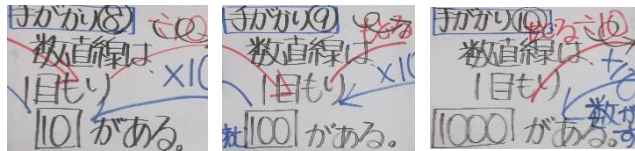 手がかり⑧
数直線は、
1目もり
10がある。
×10
手がかり⑨
数直線は、
1目もり
100がある。
×10
手がかり⑩
数直線は、
1目もり
1000がある。